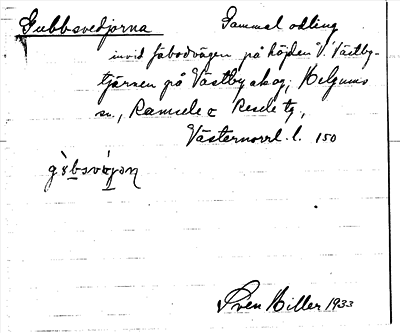 Gubbsvedjorna Gammal odling
invid fäbodvägen på höjden V. Västby-
tjärnen på Västby skog, Helgums
sn., Ramsele o Resele tg,
Västernorrl. l. 150
Sven Hiller 1933